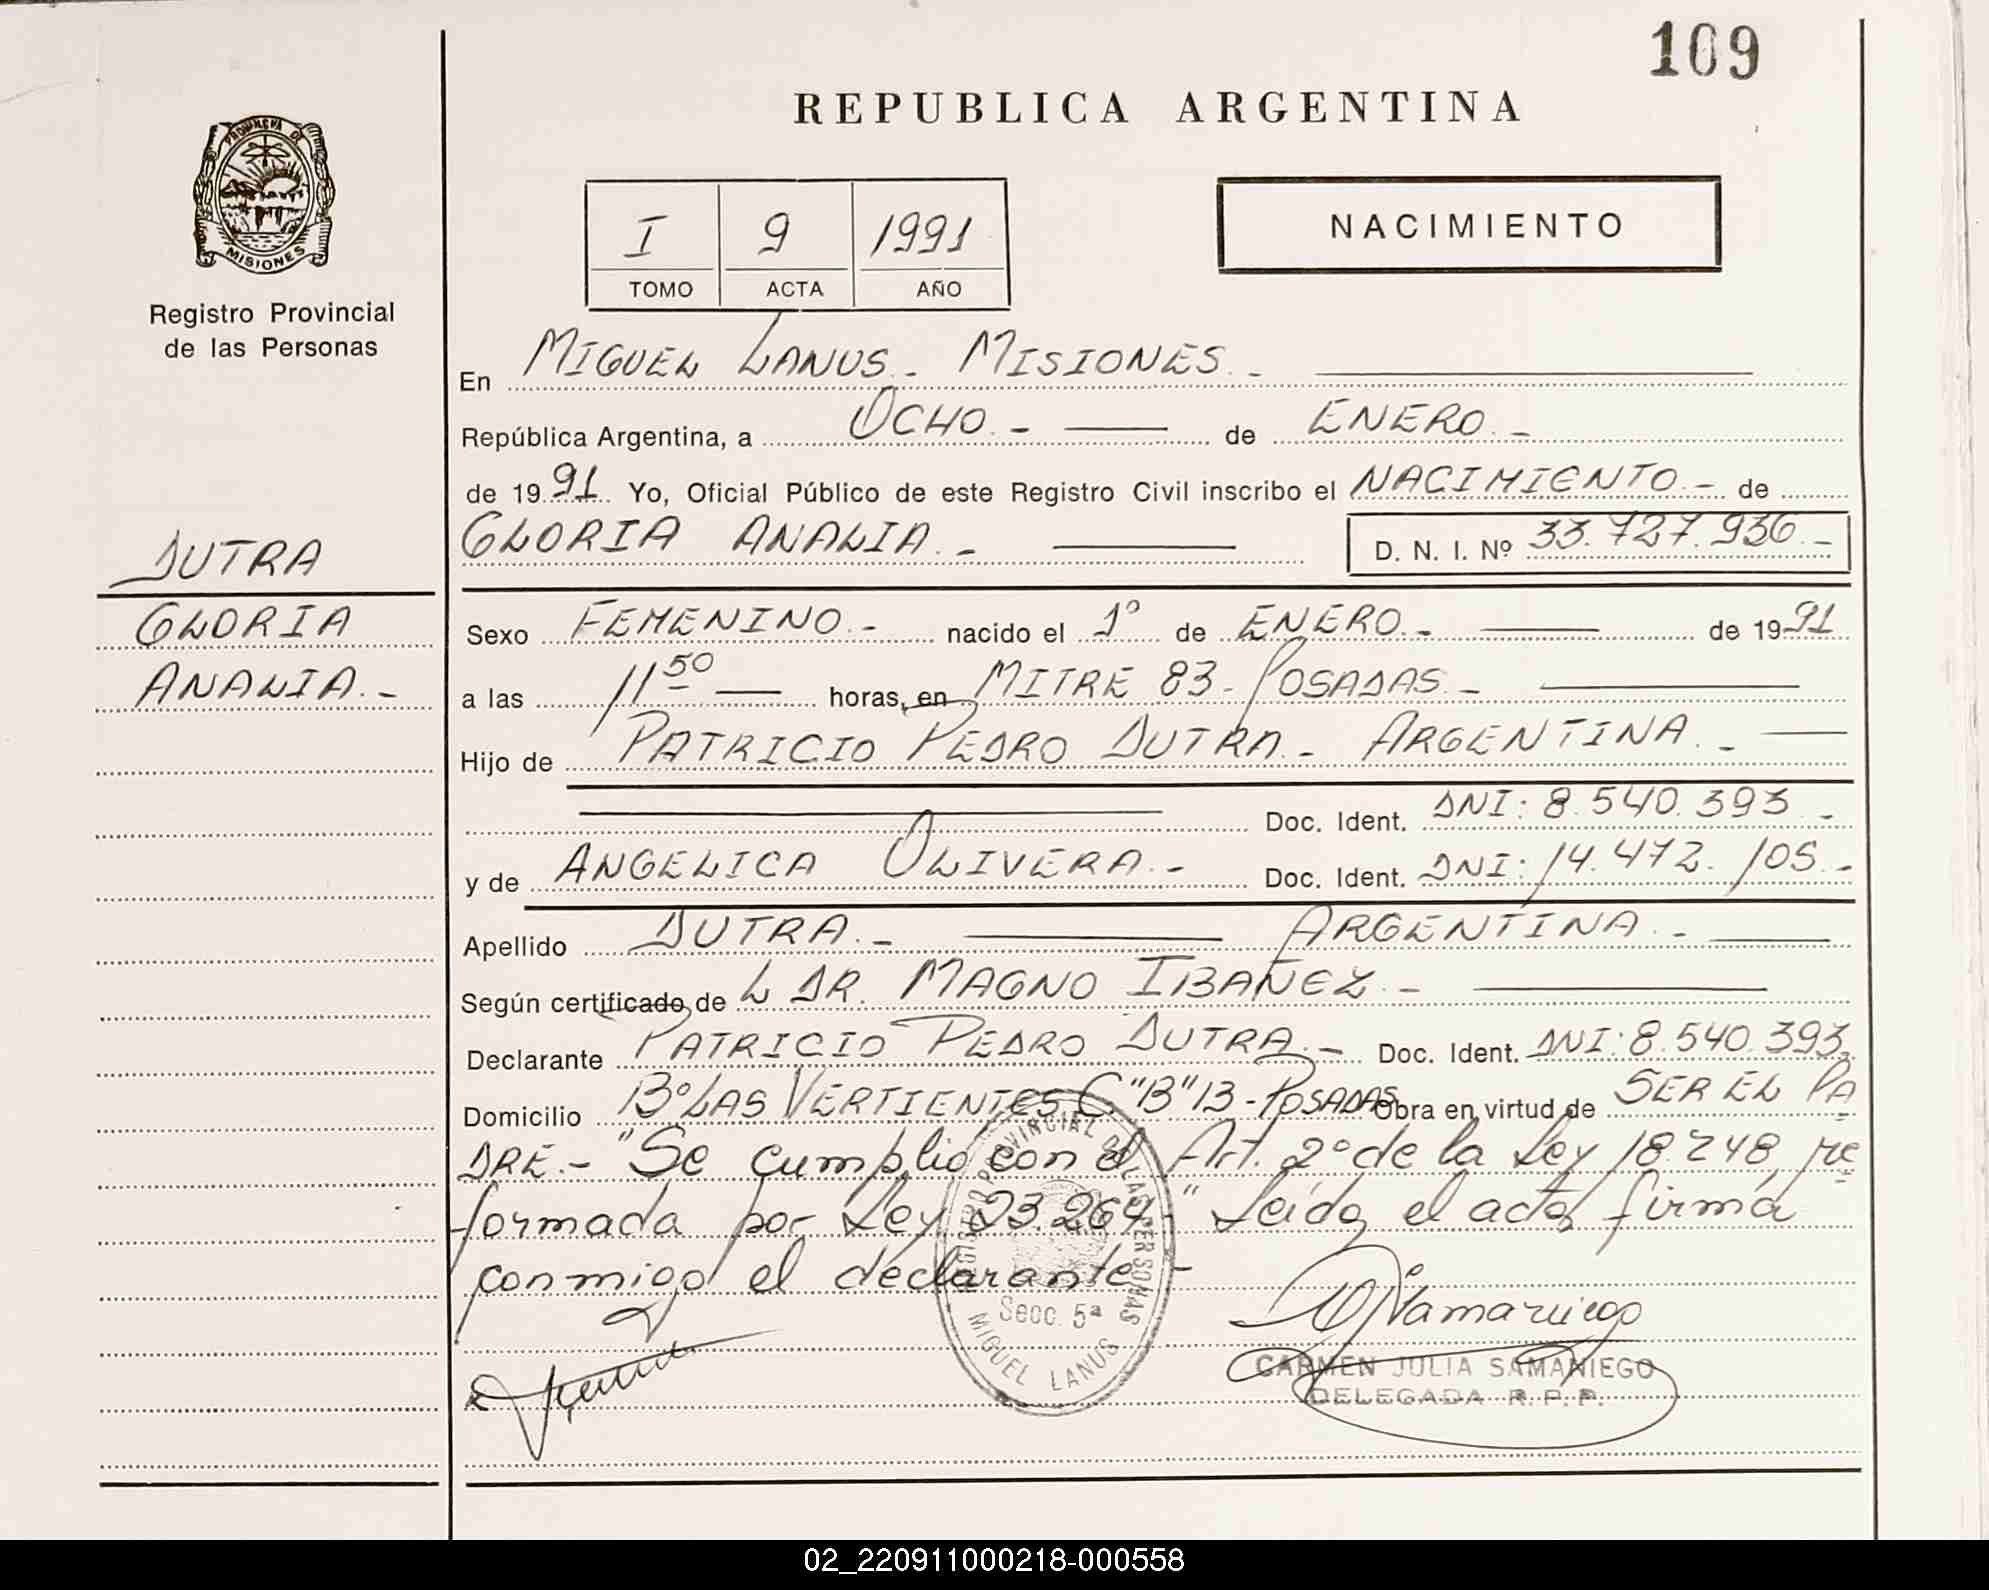 109
REPUBLICA ARGENTINA
PROVINCIA DE MISIONES
Registro Provincial
de las Personas
I 9 1991
TOMO ACTA AÑO
NACIMIENTO
En MIGUEL LANUS - MISIONES.-
República Argentina, a OCHO.- de ENERO.-
de 1991. Yo, Oficial Público de este Registro Civil inscribo el NACIMIENTO.- de
GLORIA ANALIA.- D. N. I. Nº 33.727.936.-
DUTRA
GLORIA
ANALIA.-
Sexo FEMENINO.- nacido el 1º de ENERO.- de 1991
a las 11 50 horas, en MITRE 83 - POSADAS.-
Hijo de PATRICIO PEDRO DUTRA.- ARGENTINA.-
Doc. Ident. DNI: 8.540.393.-
y de ANGELICA OLIVERA.- Doc. Ident. DNI: 14.472.105.-
Apellido DUTRA.- ARGENTINA.-
Según certificado de L DR. MAGNO IBAÑEZ.-
Declarante PATRICIO PEDRO DUTRA.- Doc. Ident. DNI: 8.540.393.
Domicilio Bº LAS VERTIENTES C. "B" 13 - POSADAS Obra en virtud de SER EL PA
DRE.- "Se cumplió con el Art. 2º de la Ley 18.248, re
formada por Ley 23.264" Leída el acta, firma
conmigo el declarante.-
REGISTRO PROVINCIAL DE LAS PERSONAS
Secc. 5ª
MIGUEL LANUS
CARMEN JULIA SAMANIEGO
DELEGADA R.P.P.
02_220911000218-000558